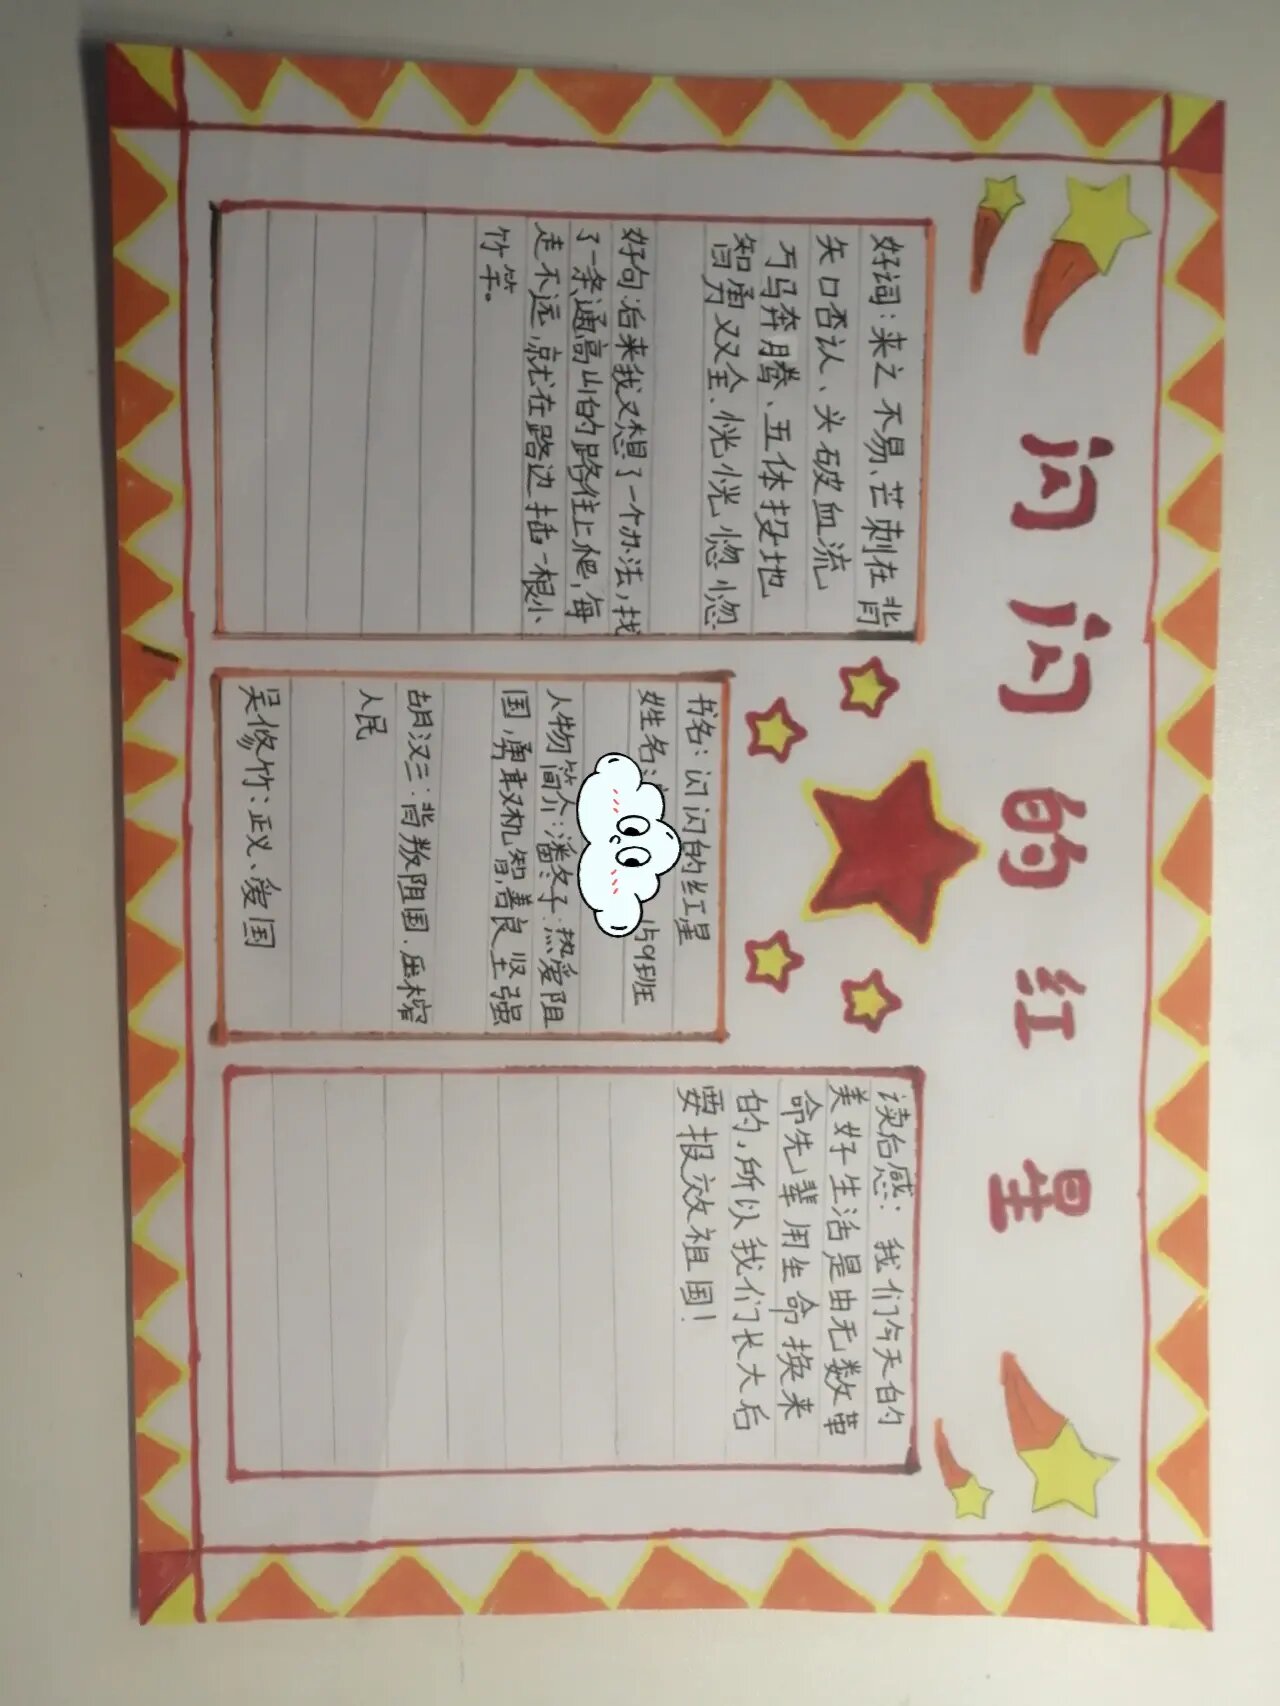 闪闪的红星
好词：来之不易、芒刺在背
矢口否认、头破血流
万马奔腾、五体投地
智勇双全、恍恍惚惚
好句：后来我又想了一个办法，找
了一条通高山的路往上爬，每
走不远，就在路边插一根小
竹竿。
书名：闪闪的红星
姓名：
159班
人物简介：潘冬子：热爱阻
国，勇敢机智，善良坚强
胡汉三：背叛阻国、压榨
人民
吴修竹：正义、爱国
读后感：我们今天的
美好生活是由无数革
命先辈用生命换来
的，所以我们长大后
要报效祖国！